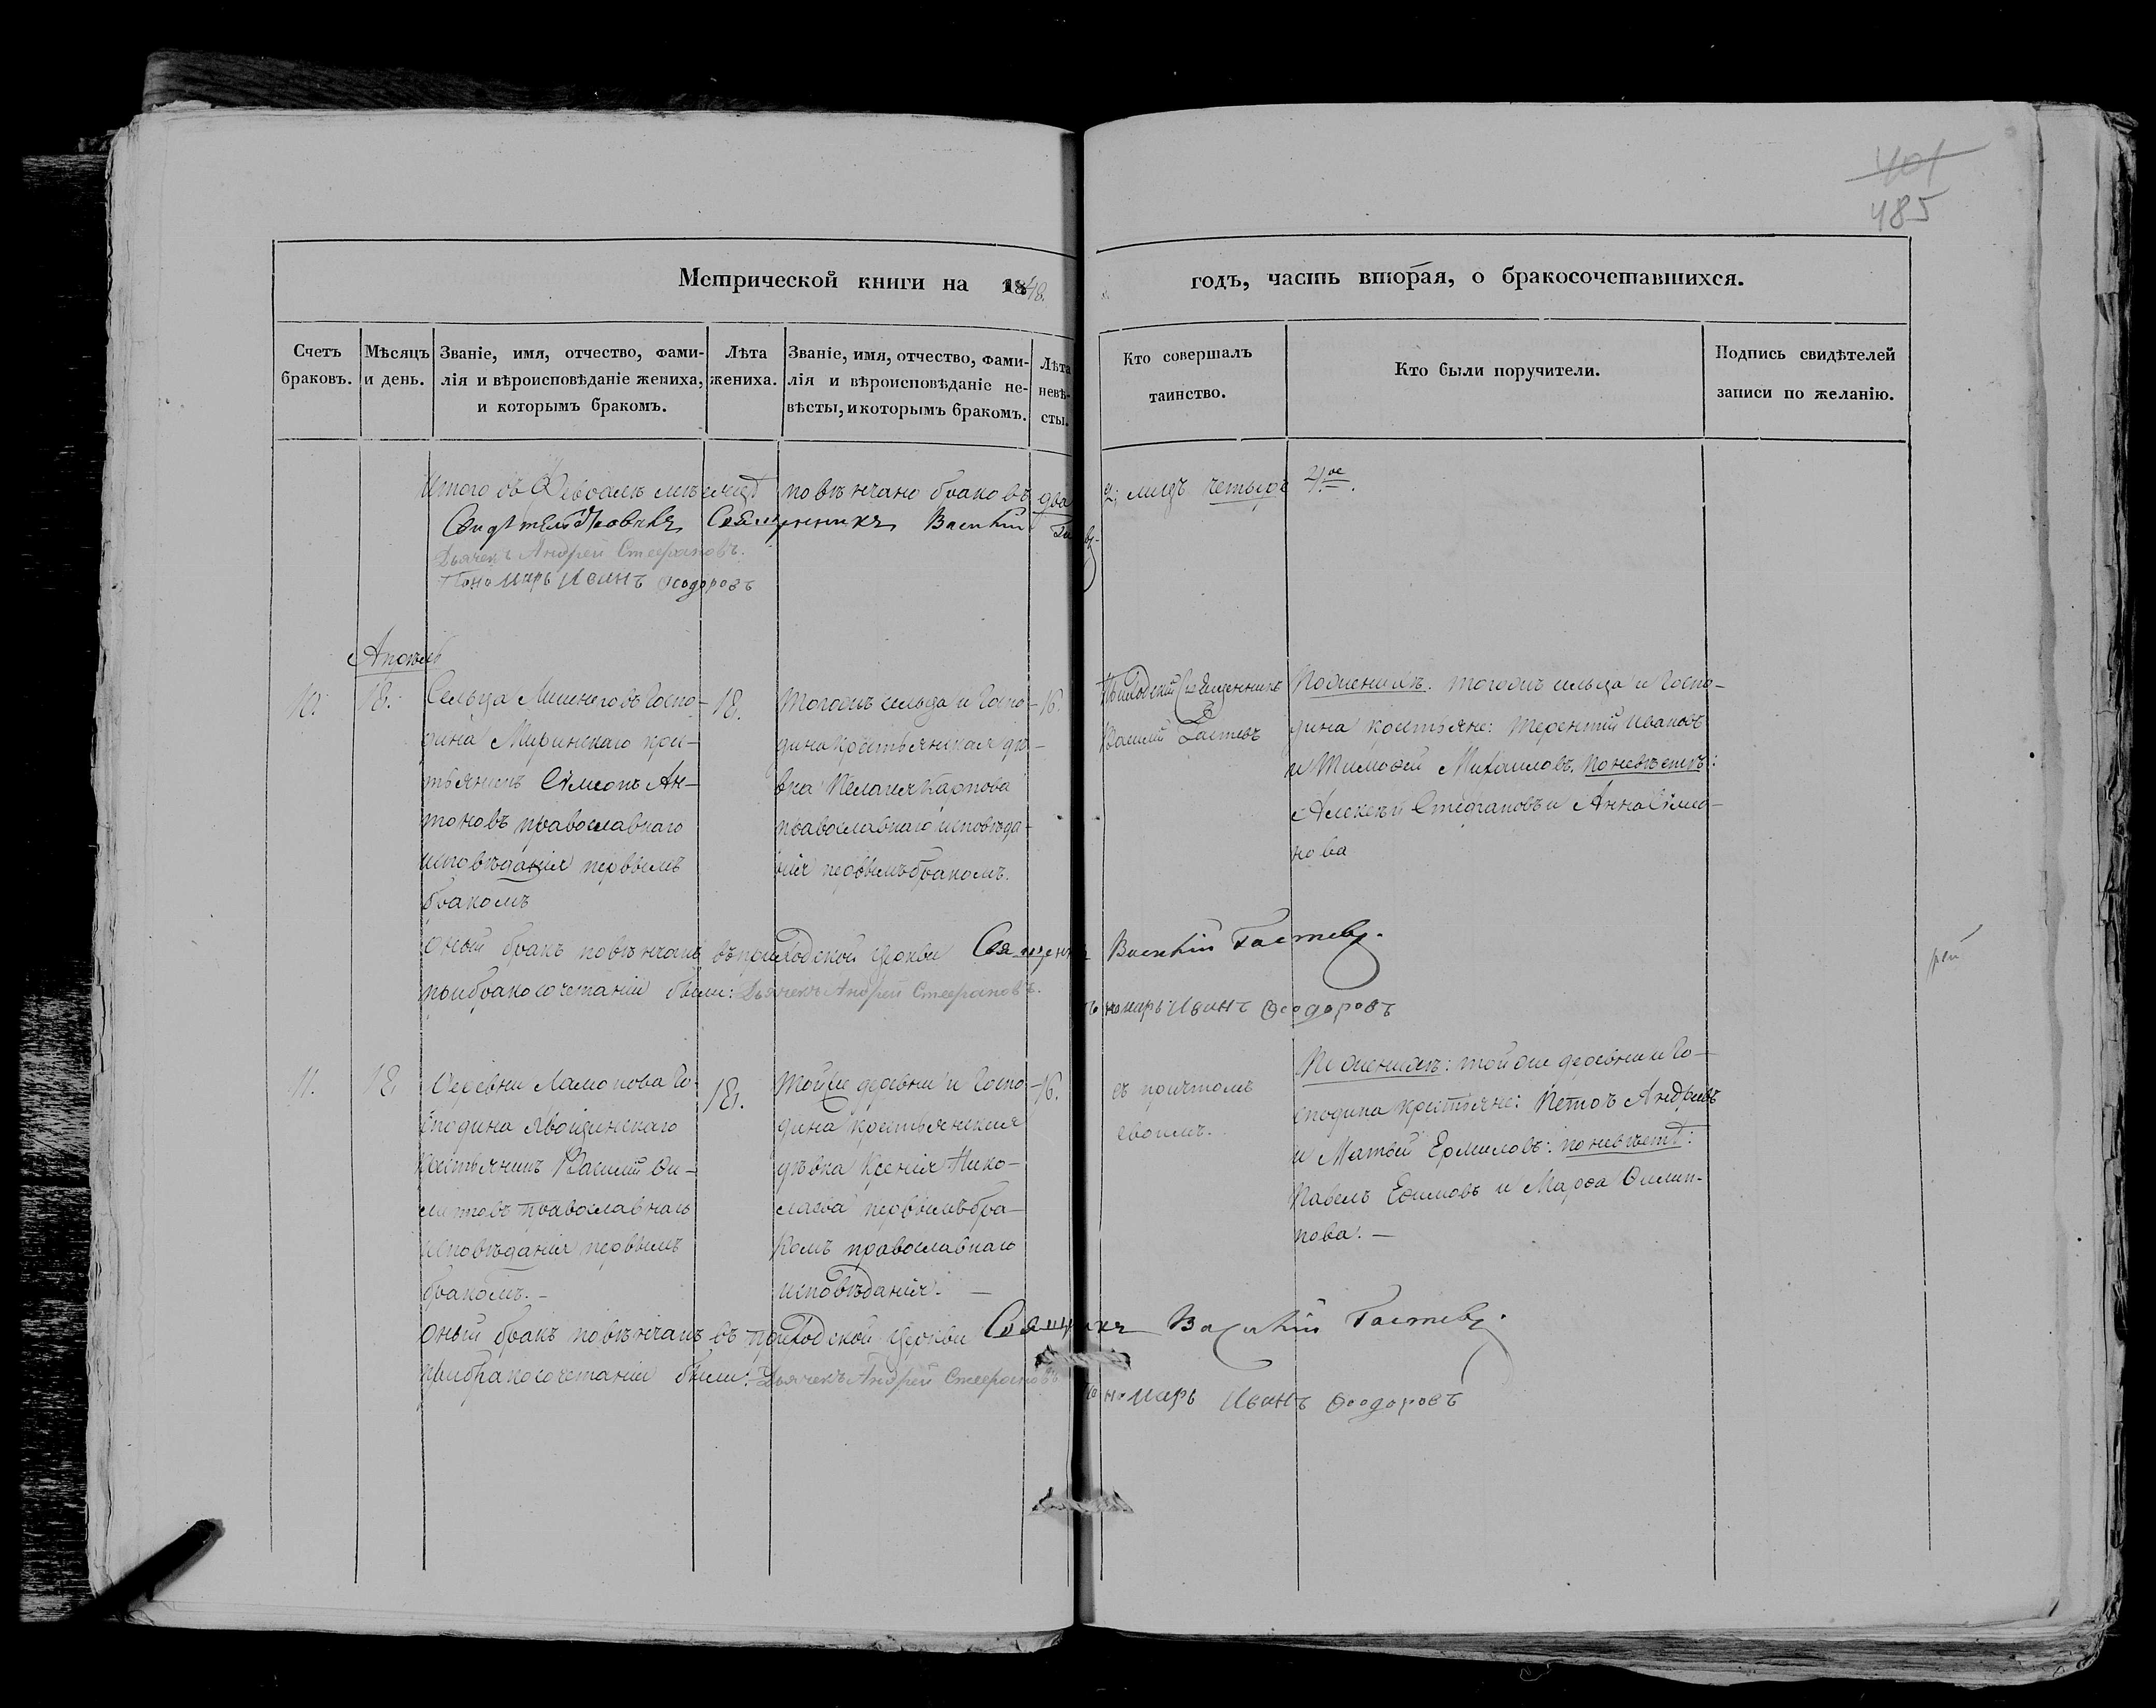 401
485
Метрической книги на 1848.
годъ, часть вторая, о бракосочетавшихся.
Счетъ браковъ.
Мѣсяцъ и день.
Званіе, имя, отчество, фами-
лія и вѣроисповѣданіе жениха,
и которымъ бракомъ.
Лѣта
жениха.
Званіе, имя, отчество, фами-
лія и вѣроисповѣданіе не-
вѣсты, и которымъ бракомъ.
Лѣта
невѣ-
сты.
Кто совершалъ
таинство.
Кто были поручители.
Подпись свидѣтелей
записи по желанію.
Итого въ Февралѣ мѣсяцѣ повѣнчано браковъ два
четыре 4.ре
Священникъ Василій
Дьячекъ Андрей Стефановъ.
Пономарь Иоанъ Ѳеодоровъ
Апрѣль
10.
18.
Сельца Госпо-
дина крес-
тьянинъ Сімеонъ Ан-
тоновъ православнаго
исповѣданія первымъ
бракомъ
18.
Тогожъ сельца и Госпо-
дина крестьянская дѣ-
вка Пелагея Карпова
православнаго исповѣда-
нія первымъ бракомъ.
16.
Приходскій Священникъ
Василій Гастевъ
По женихѣ: тогожъ сельца и Госпо-
дина крестьяне: Терентій Ивановъ
и Тимоѳей Михаиловъ. по невѣстѣ:
Алексѣй Стефановъ и Анна Сімео-
нова
Оный бракъ повѣнчанъ въ приходской церкви Священникъ Василій Гастевъ.
при бракосочетаніи были: Дьячекъ Андрей Стефановъ.
Пономарь Иванъ Ѳеодоровъ
11.
18
Деревни Ламонова Го-
сподина
крестьянинъ Василій Ѳи-
липповъ православнаго
исповѣданія первымъ
бракомъ.-
18.
Тойже деревни и Госпо-
дина крестьянская
дѣвка Ксенія Нико-
лаева первымъ бра-
комъ православнаго
исповѣданія. -
16.
съ причтомъ
своимъ.
По женихѣ: той же деревни и Го-
сподина крестьяне: Петръ Андреевъ
и Матвей Ермиловъ: по невѣстѣ:
Павелъ Ефимовъ и Марѳа Филип-
пова. -
Оный бракъ повѣнчанъ въ приходской церкви Священникъ Василій Гастевъ.
при бракосочетаніи были: Дьячекъ Андрей Стефановъ
Пономарь Иванъ Ѳеодоровъ